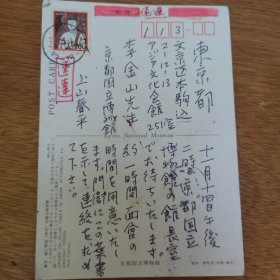 速達
113
POST CARD
東京都
文京区本駒込
2-12-13
アジア文化会館251室
李金山先生
Kyoto National Museum
京都国立博物館
上山春平
十二月十四日午後
二時、京都国立
博物館の館長室
でお待ちいたします。
約一時間、面会の
時間を用意いたし
ます。門衛にこの葉書
を示して連絡を求め
て下さい。
京都国立博物館